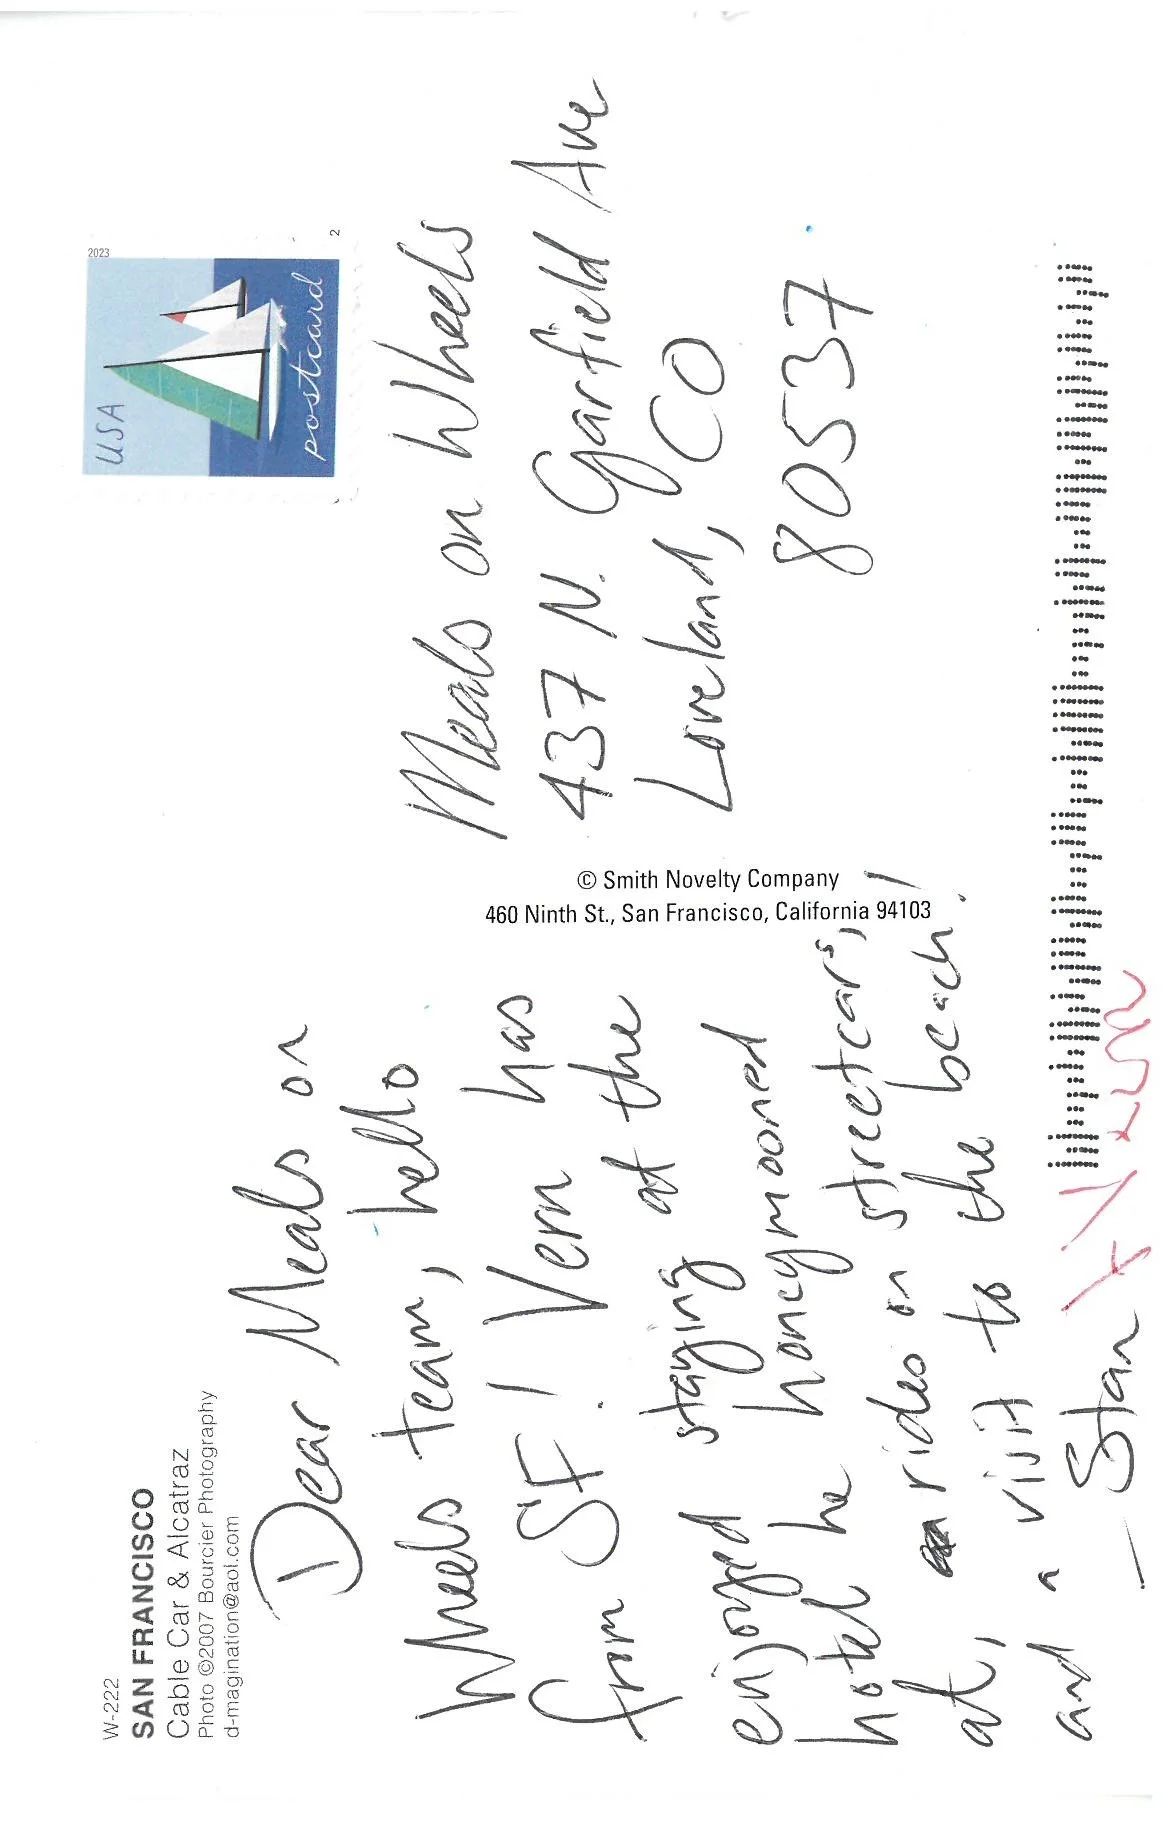 W-222
SAN FRANCISCO
Cable Car & Alcatraz
Photo ©2007 Bourcier Photography
d-magination@aol.com
Dear Meals on
Wheels team, hello
from SF! Vern has
enjoyed staying at the
hotel he honeymooned
at, rides on streetcars,
and a visit to the beach!
- Stan
© Smith Novelty Company
460 Ninth St., San Francisco, California 94103
2023
USA
postcard
2
Meals on Wheels
437 N. Garfield Ave
Loveland, CO
80537